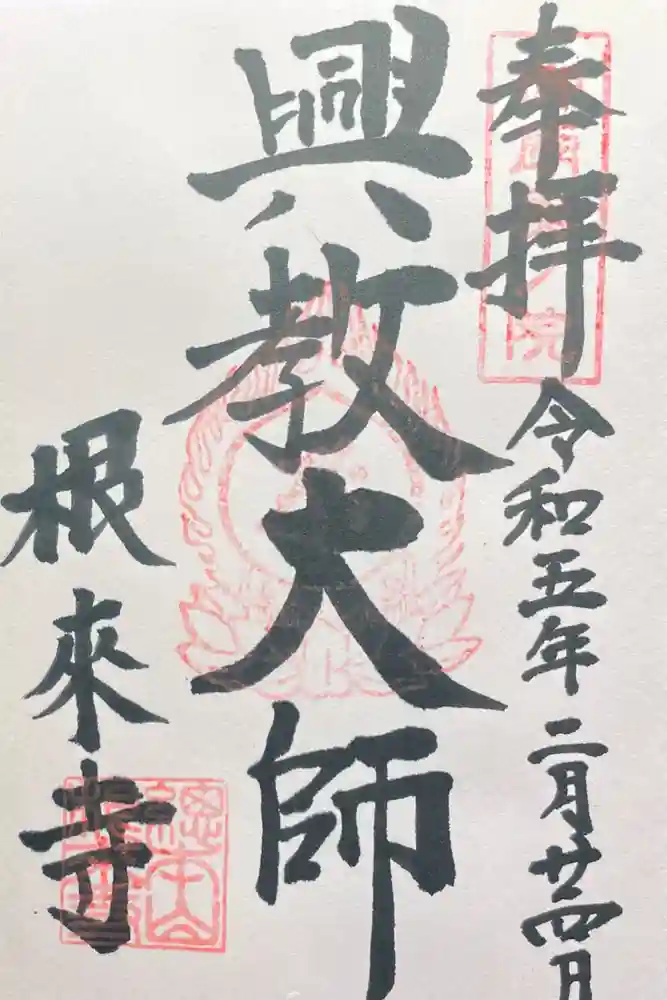 奉拝
令和五年二月廿四日
興教大師
根來寺